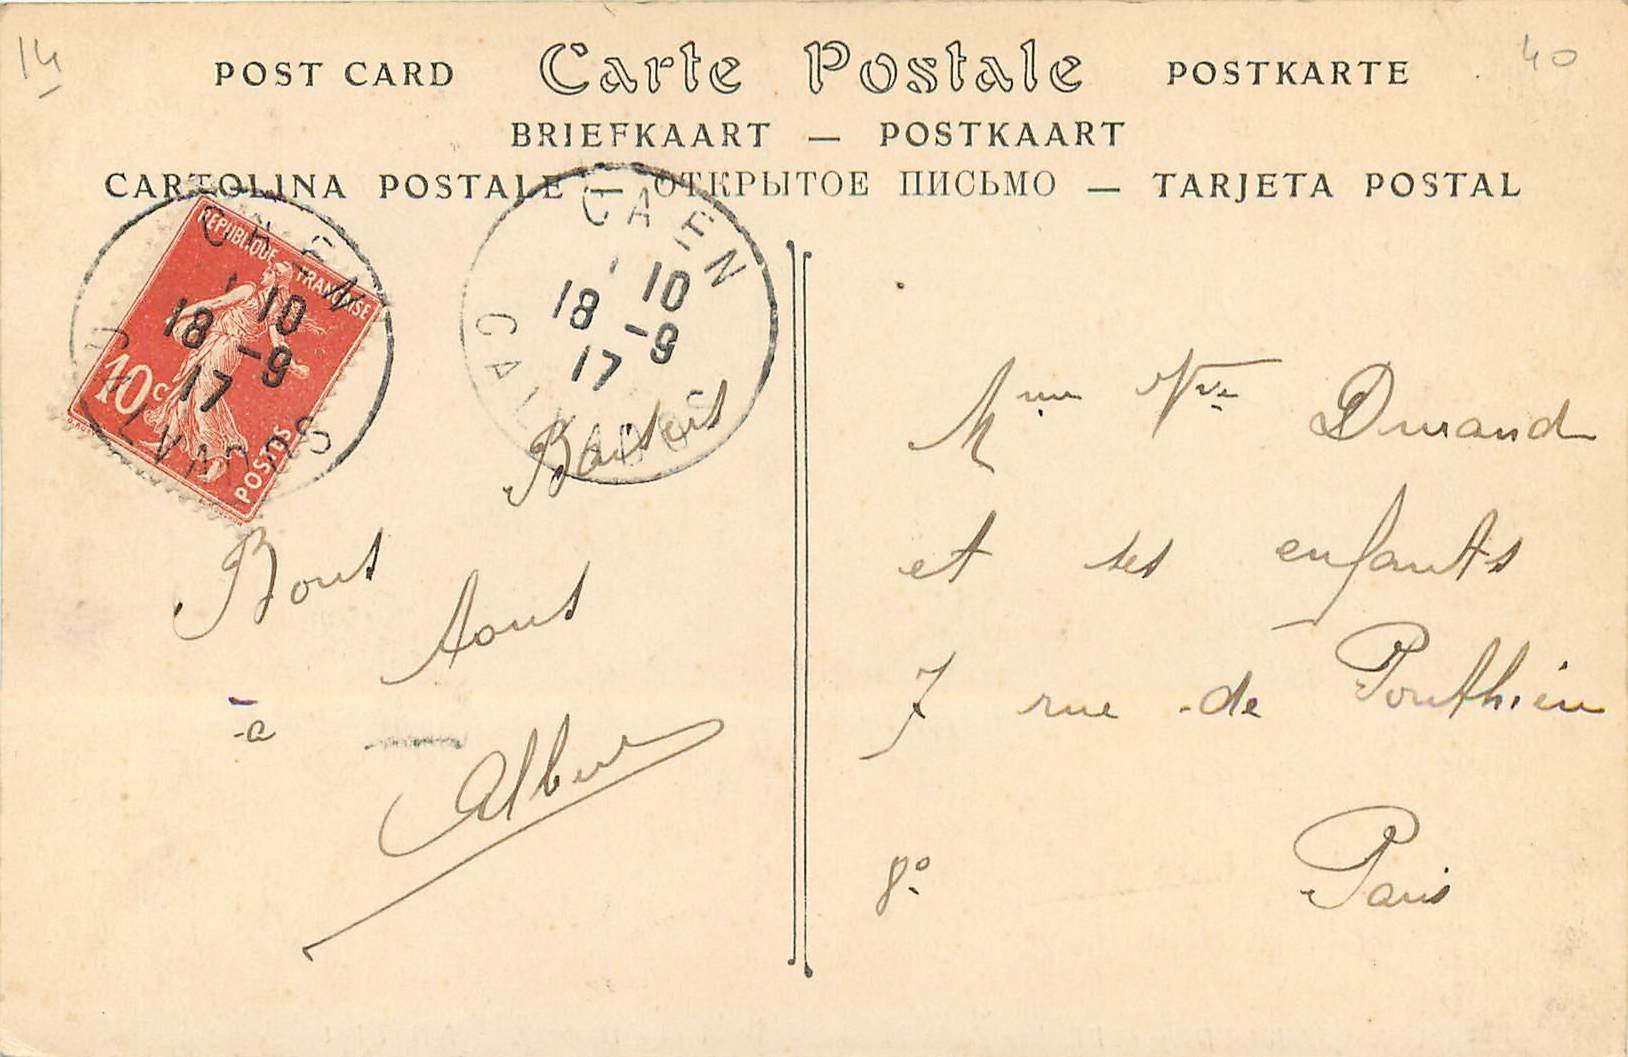 14
40
POST CARD Carte Postale POSTKARTE
BRIEFKAART — POSTKAART
CARTOLINA POSTALE — ОТКРЫТОЕ ПИСЬМО — TARJETA POSTAL
REPUBLIQUE FRANÇAISE
10c
POSTES
CAEN
10
18 -9
17
CALVADOS
CAEN
10
18 -9
17
CALVADOS
Bons Baisers
à tous
Albert
Mme Vve Durand
et ses enfants
7 rue de Ponthieu
8e Paris